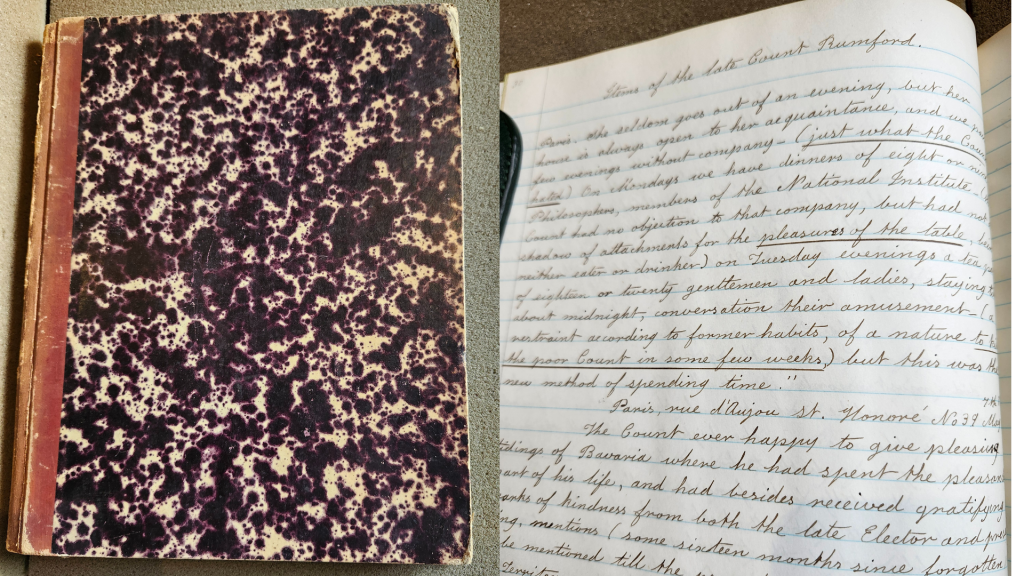 Items of the late Count Rumford.
Paris. She seldom goes out of an evening, but her
house is always open to her acquaintance, and we
few evenings without company - (just what the
hated) On Mondays we have dinners of eight or nine
Philosophers, members of the National Institute. (
Count had no objection to that company, but had not
shadow of attachments for the pleasures of the table,
neither eater or drinker) on Tuesday evenings a tea
of eighteen or twenty gentlemen and ladies, staying
about midnight, conversation their amusement - (a
restraint according to former habits, of a nature to
the poor Count in some few weeks,) but this was the
new method of spending time."
Paris, rue d'Anjou st. Honoré No 39
The Count ever happy to give pleasing
tidings of Bavaria where he had spent the
part of his life, and had besides received gratifying
marks of kindness from both the late Elector and
mentions (some sixteen months since forgotten
be mentioned till the